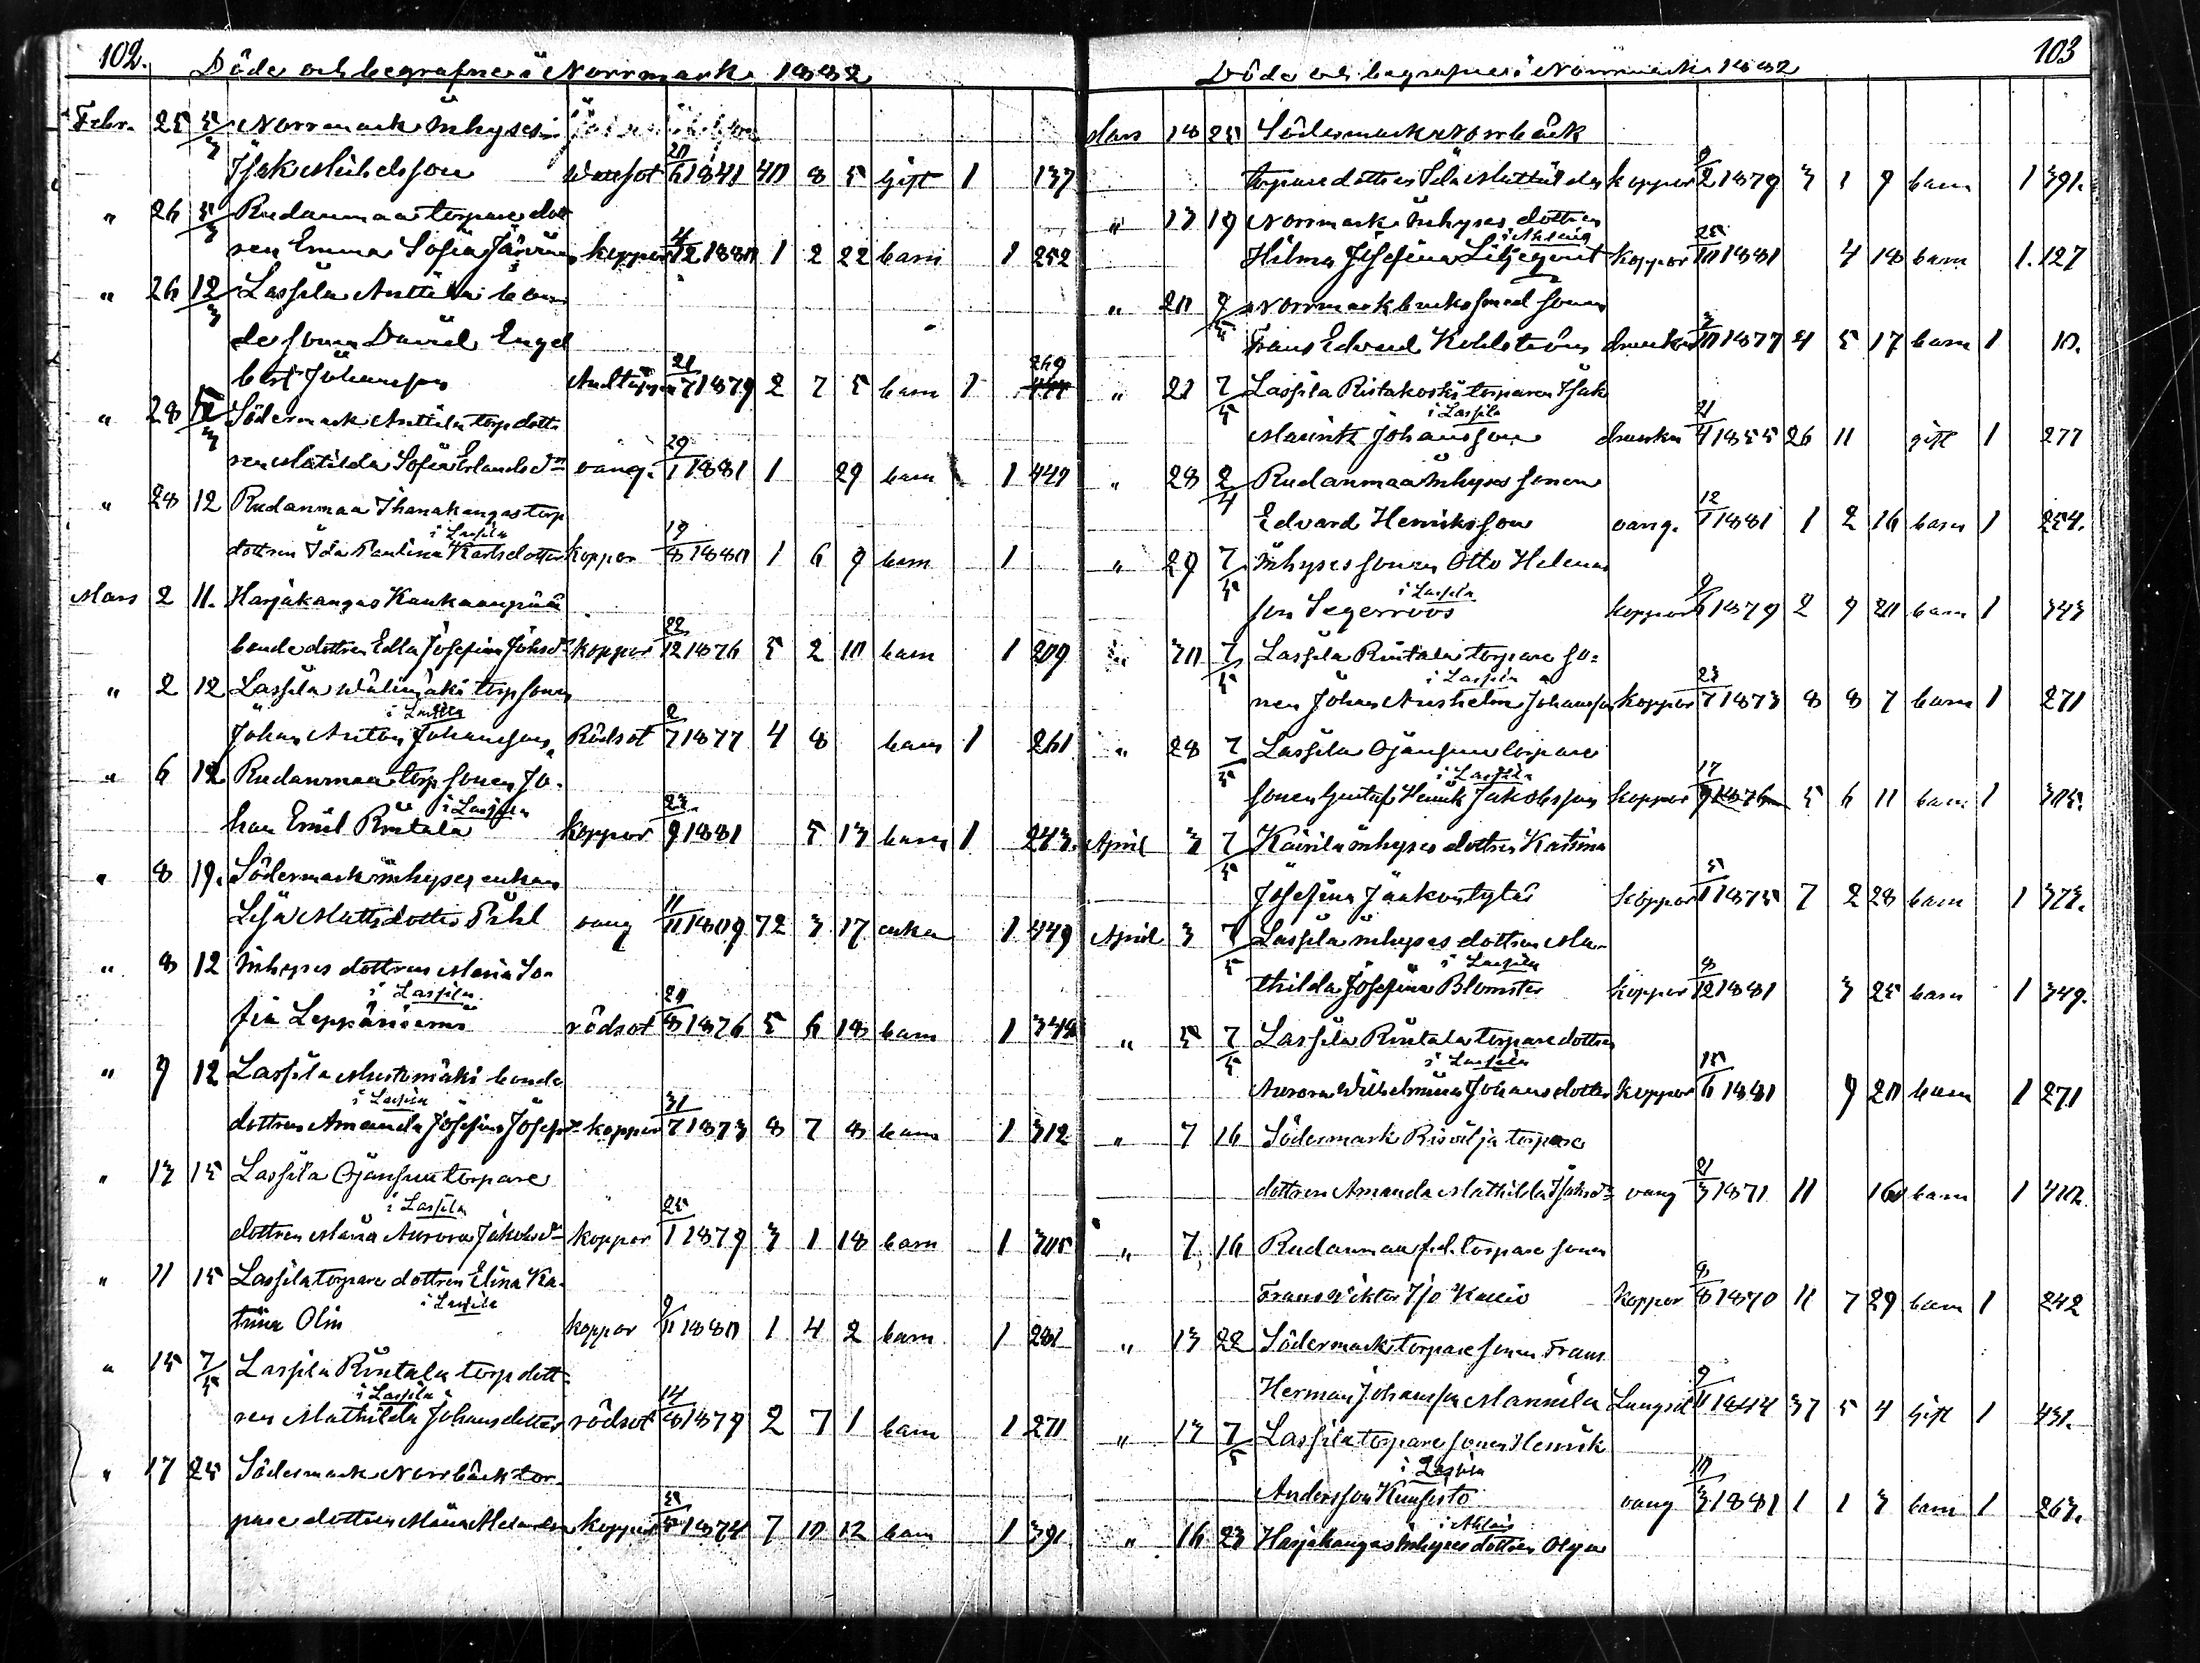 102.
Döde och begrafne i Norrmark 1882
Febr. 25 5/3 Norrmark Inhyses
Isak Michelsson Wattsot 20/6 1841 40 8 5 Gift 1 137
" 26 5/3 Rudanmaa torpare dott
ren Emma Sofia Järvinen koppor 4/12 1880 1 2 22 barn 1 252
" 26 12/3 Lassila Anttila bon
de sonen David Engel
bert Johansson Andtäppa 21/7 1879 2 7 5 barn 1 269
" 28 12/3 Södermark Anttila torp dott
ren Matilda Sofia Erlandsdr vang. 29/1 1881 1 29 barn 1 449
" 28 12 Rudanmaa Ihanakangas torp
i Lassila
dottren Ida Paulina Karlsdotter koppor 19/8 1880 1 6 9 barn 1
Mars 2 11. Harjakangas Kankaanpää
bonde dottren Edla Josefina Johsdr koppor 22/12 1876 5 2 10 barn 1 209
" 2 12 Lassila Wälimäki torp sonen
i Lassila
Johan Anton Johansson Rödsot 2/7 1877 4 8 barn 1 261
" 6 12 Rudanmaa torp sonen Jo-
i Lassila
han Emil Rintala koppor 23/9 1881 5 13 barn 1 243.
" 8 19. Södermark inhyses enkan
Lisa Mattsdotter Påhl vang 11/11 1809 72 3 17 enka 1 449
" 8 12 Inhyses dottren Maria So-
i Lassila
fia Leppäniemi rödsot 20/8 1876 5 6 18 barn 1 342
" 9 12 Lassila Mustamäki bonde
i Lassila
dottren Amanda Josefina Josefsdr koppor 31/7 1873 8 7 8 barn 1 312
" 13 15 Lassila Ojansuu torpare
i Lassila
dottren Maria Aurora Jakobsdr koppor 25/1 1879 3 1 18 barn 1 305
" 11 15 Lassila torpare dottren Elina Ka-
i Lassila
trina Olin koppor 9/11 1880 1 4 2 barn 1 281
" 15 7/5 Lassila Rintala torp dott-
i Lassila
ren Mathilda Johansdotter rödsot 14/8 1879 2 7 1 barn 1 271
" 17 25 Södermark Norrbäck tor-
pare dottren Maria koppor 5/5 1874 7 10 12 barn 1 391
103
Döde och begrafne i Norrmark 1882
Mars 18 25 Södermark Norrbäck
torpare dottren Ida Mattsdr koppor 9/2 1879 3 1 9 barn 1 391.
" 13 19 Norrmark Inhyses dottren
Hilma Josefina Liljeqvist koppor 25/10 1881 4 18 barn 1. 127
" 20 7/5 Norrmark bruks smed sonen
Frans Edvard Kohlström drunknad 3/10 1877 4 5 17 barn 1 10.
" 21 7/5 Lassila Ristakoski torparen Isak
i Lassila
Mauritz Johansson drunkn 21/4 1855 26 11 gift 1 277
" 28 2/4 Rudanmaa Inhyses sonen
Edvard Henriksson vang. 12/1 1881 1 2 16 barn 1 254.
" 29 7/5 Inhyses sonen Otto Helenas
i Lassila
son Segerroos koppor 9/6 1879 2 9 20 barn 1 343
" 30 7/5 Lassila Rintala torpare so-
i Lassila
nen Johan Anshelm Johansson koppor 23/7 1873 8 8 7 barn 1 271
" 28 7/5 Lassila Ojansuu torpare
i Lassila
sonen Gustaf Henrik Jakobsson koppor 17/9 1876 5 6 11 barn 1 305.
April 3 7/5 Kairila inhyses dottren Katrina
Josefina Jaakontytär koppor 5/1 1875 7 2 28 barn 1 373.
April 3 7/5 Lassila inhyses dottren Ma-
i Lassila
thilda Josefina Blomster koppor 8/12 1881 3 25 barn 1 349.
" 5 7/5 Lassila Rintala torpare dottren
i Lassila
Aurora Wilhelmina Johansdotter koppor 15/6 1881 9 20 barn 1 271
" 7 16 Södermark Risvilja torpare
dottren Amanda Mathilda Isaksdr vang 21/3 1871 11 16 barn 1 402
" 7 16 Rudanmaa f.d. torpare sonen
Frans Wiktor Iso Kallio koppor 9/8 1870 11 7 29 barn 1 242
" 13 22 Södermark torpare sonen Frans
Herman Johansson Mannila Lungsot 9/11 1844 37 5 4 Gift 1 431.
" 13 7/5 Lassila torpare sonen Henrik
i Lassila
Andersson Kuusisto vang 10/3 1881 1 1 3 barn 1 267.
" 16 23 Harjakangas Inhyses dottren Olga